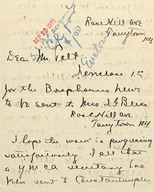 Rose Hill Ave
Tarrytown
NY
Dear Mr Pelt
I enclose 1.00
for the Bosphorus News
to be sent to Mrs
Rose Hill Ave
Tarrytown NY
I hope the work is progressing
satisfactorily. I see that
a Y.M.C.A secretary has
been sent to Constantinople